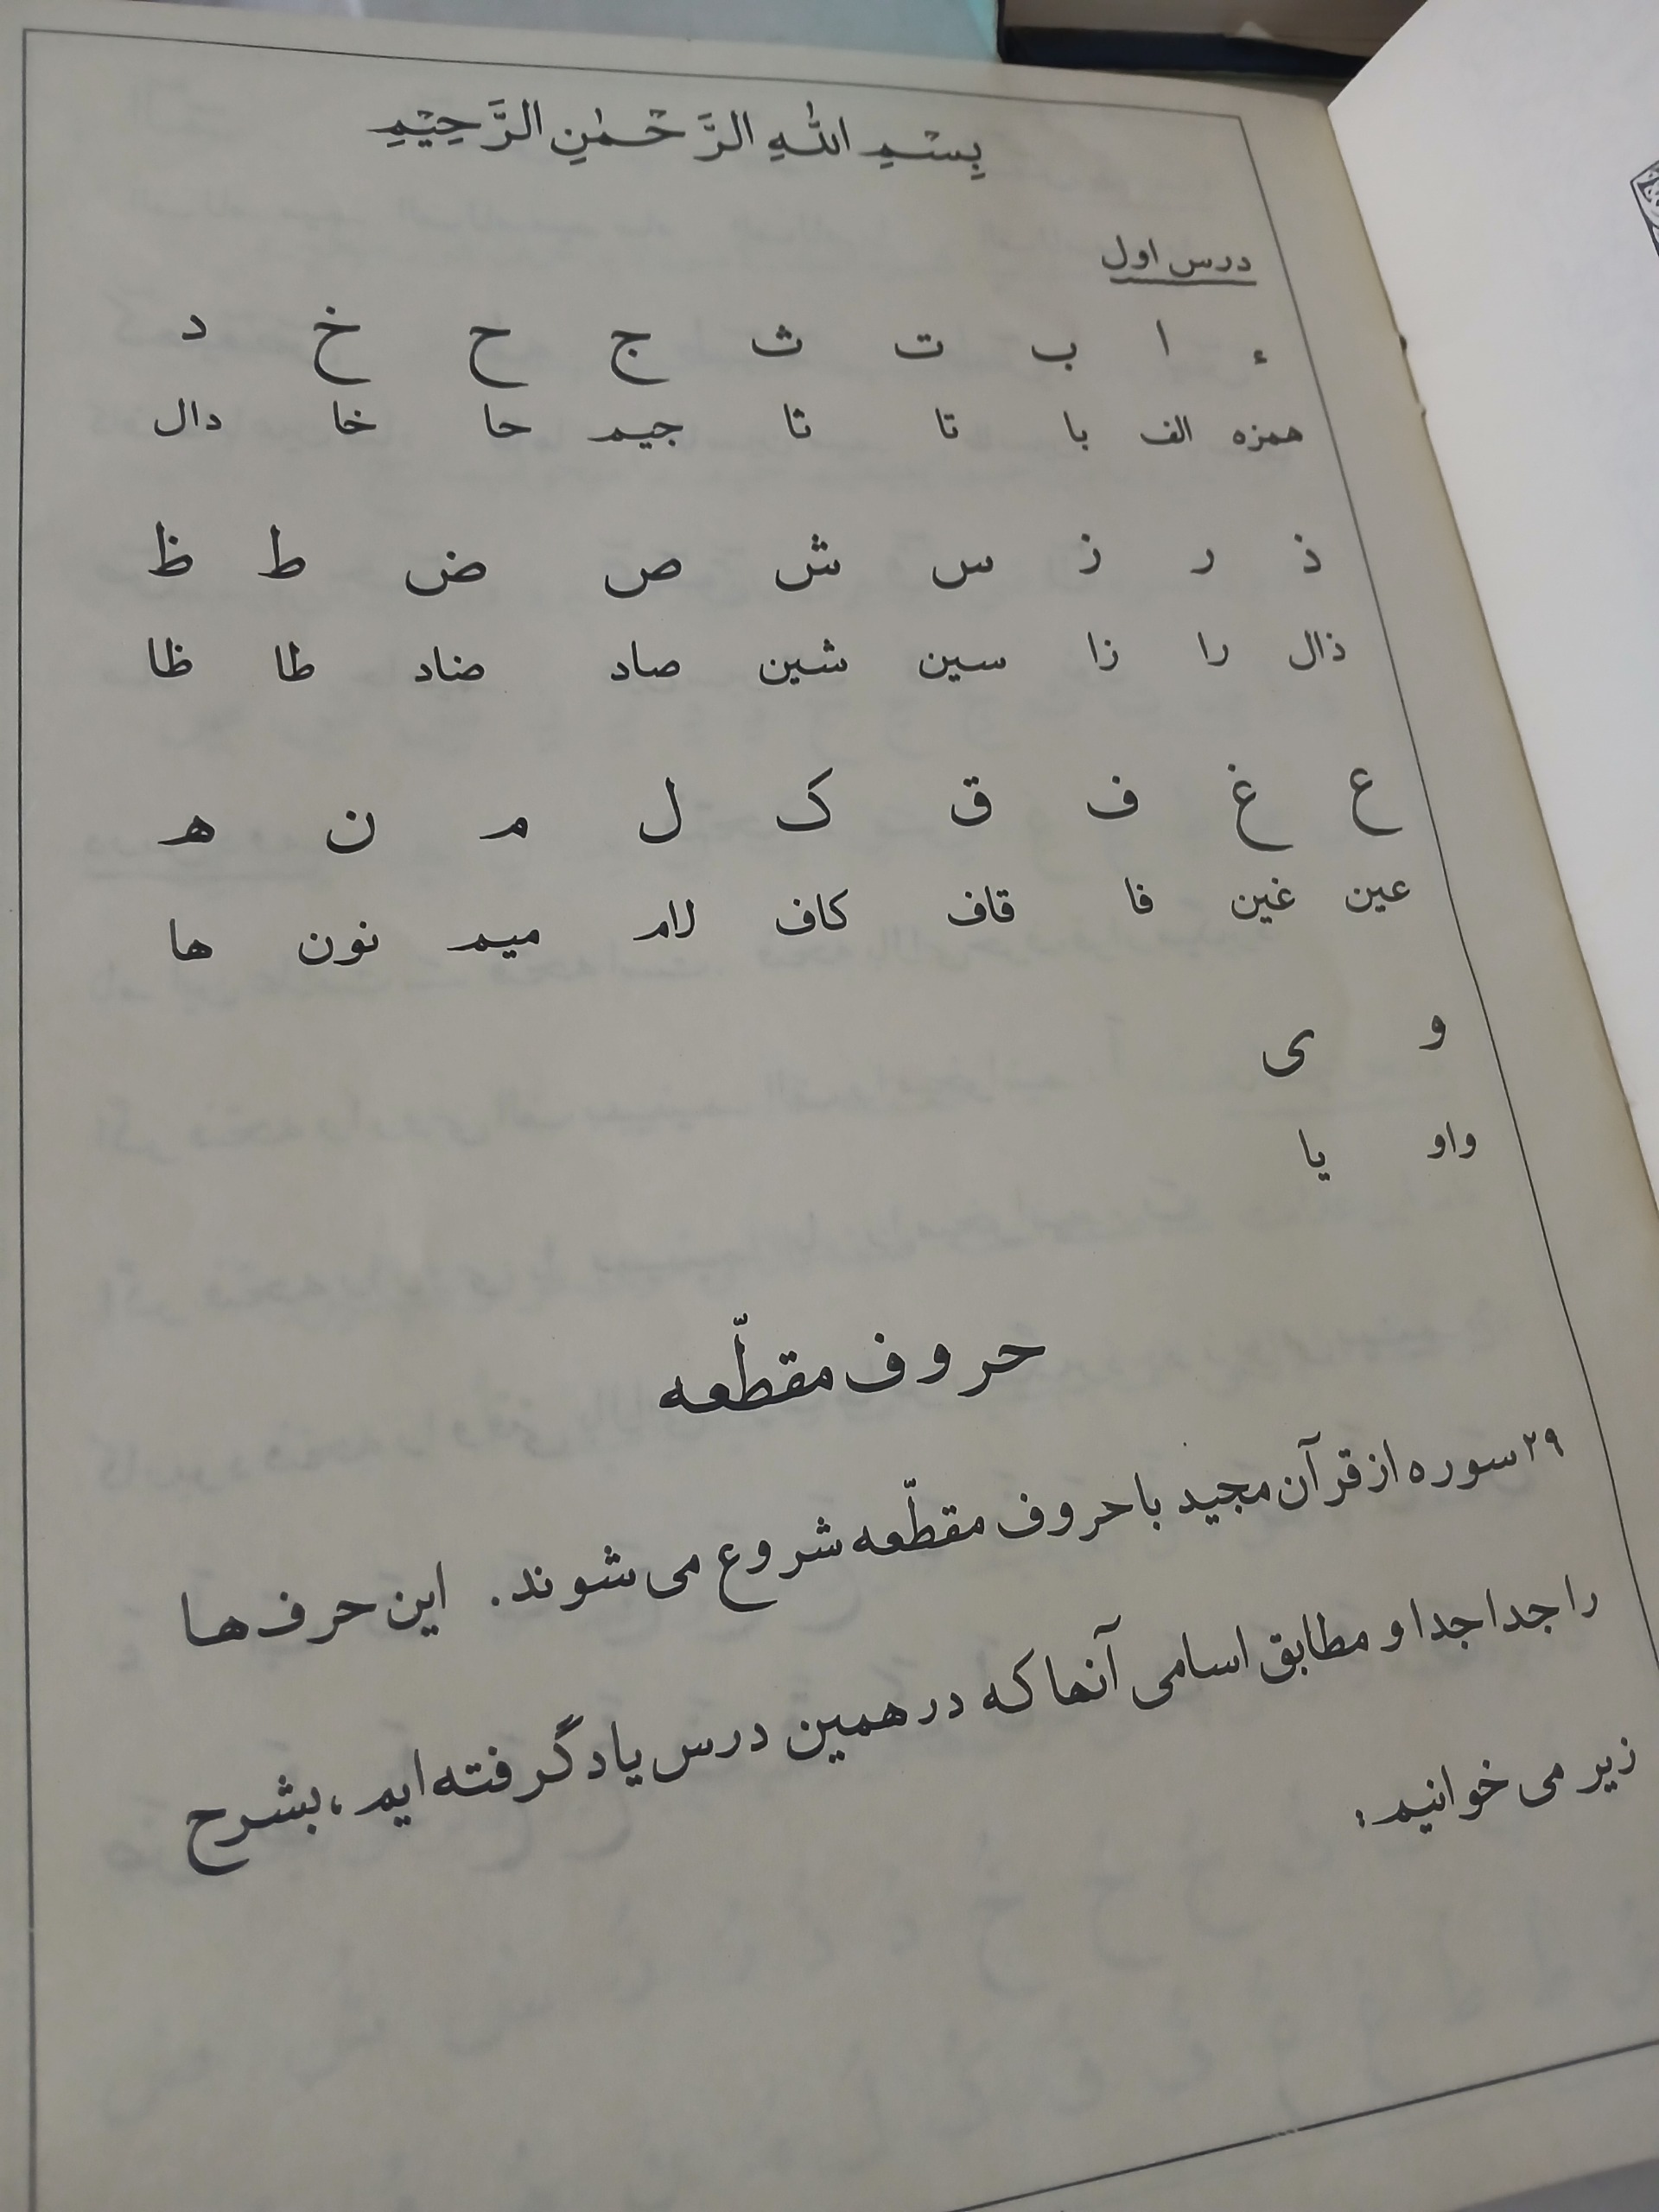 بِسْمِ اللهِ الرَّحْمٰنِ الرَّحِيْمِ
درس اول
ء ا ب ت ث ج ح خ د
همزه الف با تا ثا جیم حا خا دال
ذ ر ز س ش ص ض ط ظ
ذال را زا سین شین صاد ضاد طا ظا
ع غ ف ق ک ل م ن ه
عین غین فا قاف کاف لام میم نون ها
و ی
واو یا
حروف مقطّعه
۲۹ سوره از قرآن مجید با حروف مقطّعه شروع می شوند. این حرف ها
را جدا جدا و مطابق اسامی آنها که در همین درس یاد گرفته ایم، بشرح
زیر می خوانیم: